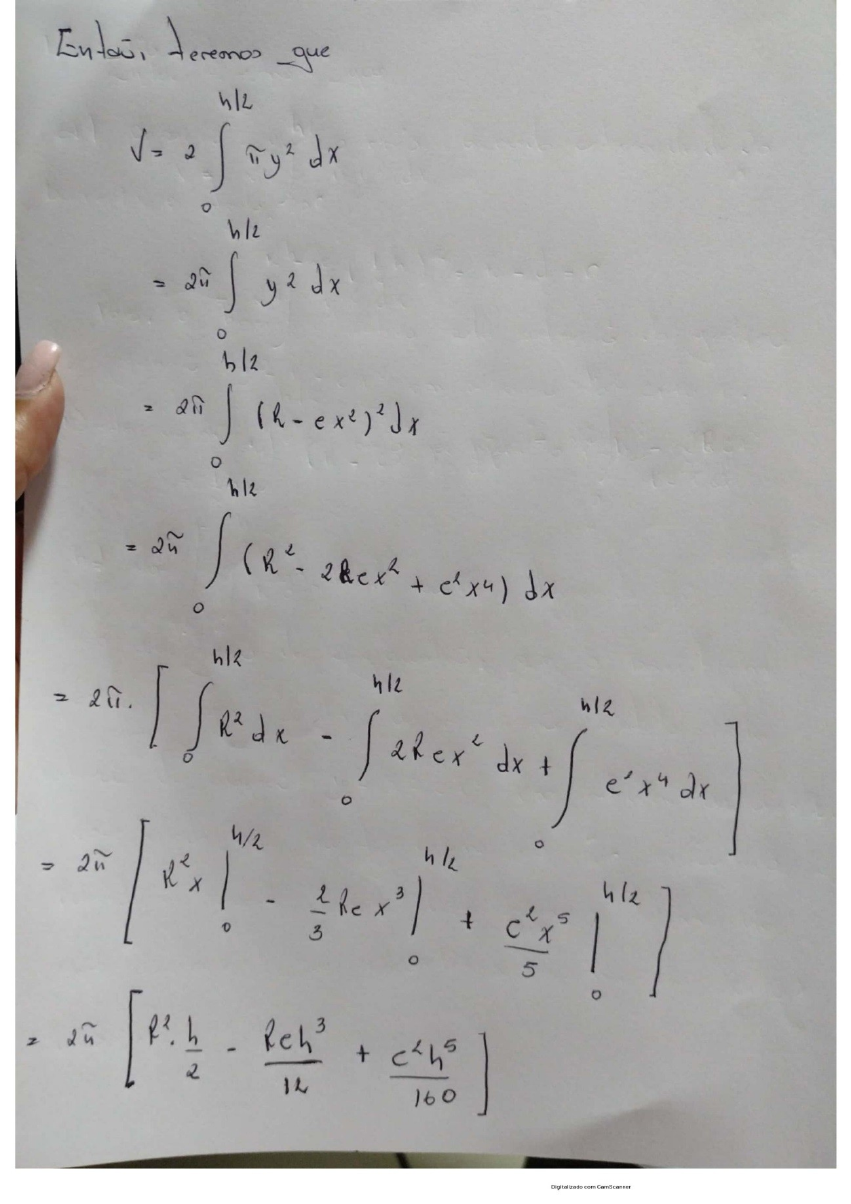 Então, teremos que
V = 2 ∫₀^{h/2} π y² dx
= 2π ∫₀^{h/2} y² dx
= 2π ∫₀^{h/2} (R - cx²)² dx
= 2π ∫₀^{h/2} (R² - 2Rcx² + c²x⁴) dx
= 2π. [ ∫₀^{h/2} R² dx - ∫₀^{h/2} 2Rcx² dx + ∫₀^{h/2} c²x⁴ dx ]
= 2π [ R²x |₀^{h/2} - 2/3 Rcx³ |₀^{h/2} + c²x⁵/5 |₀^{h/2} ]
= 2π [ R². h/2 - Rch³/12 + c²h⁵/160 ]
Digitalizado com CamScanner